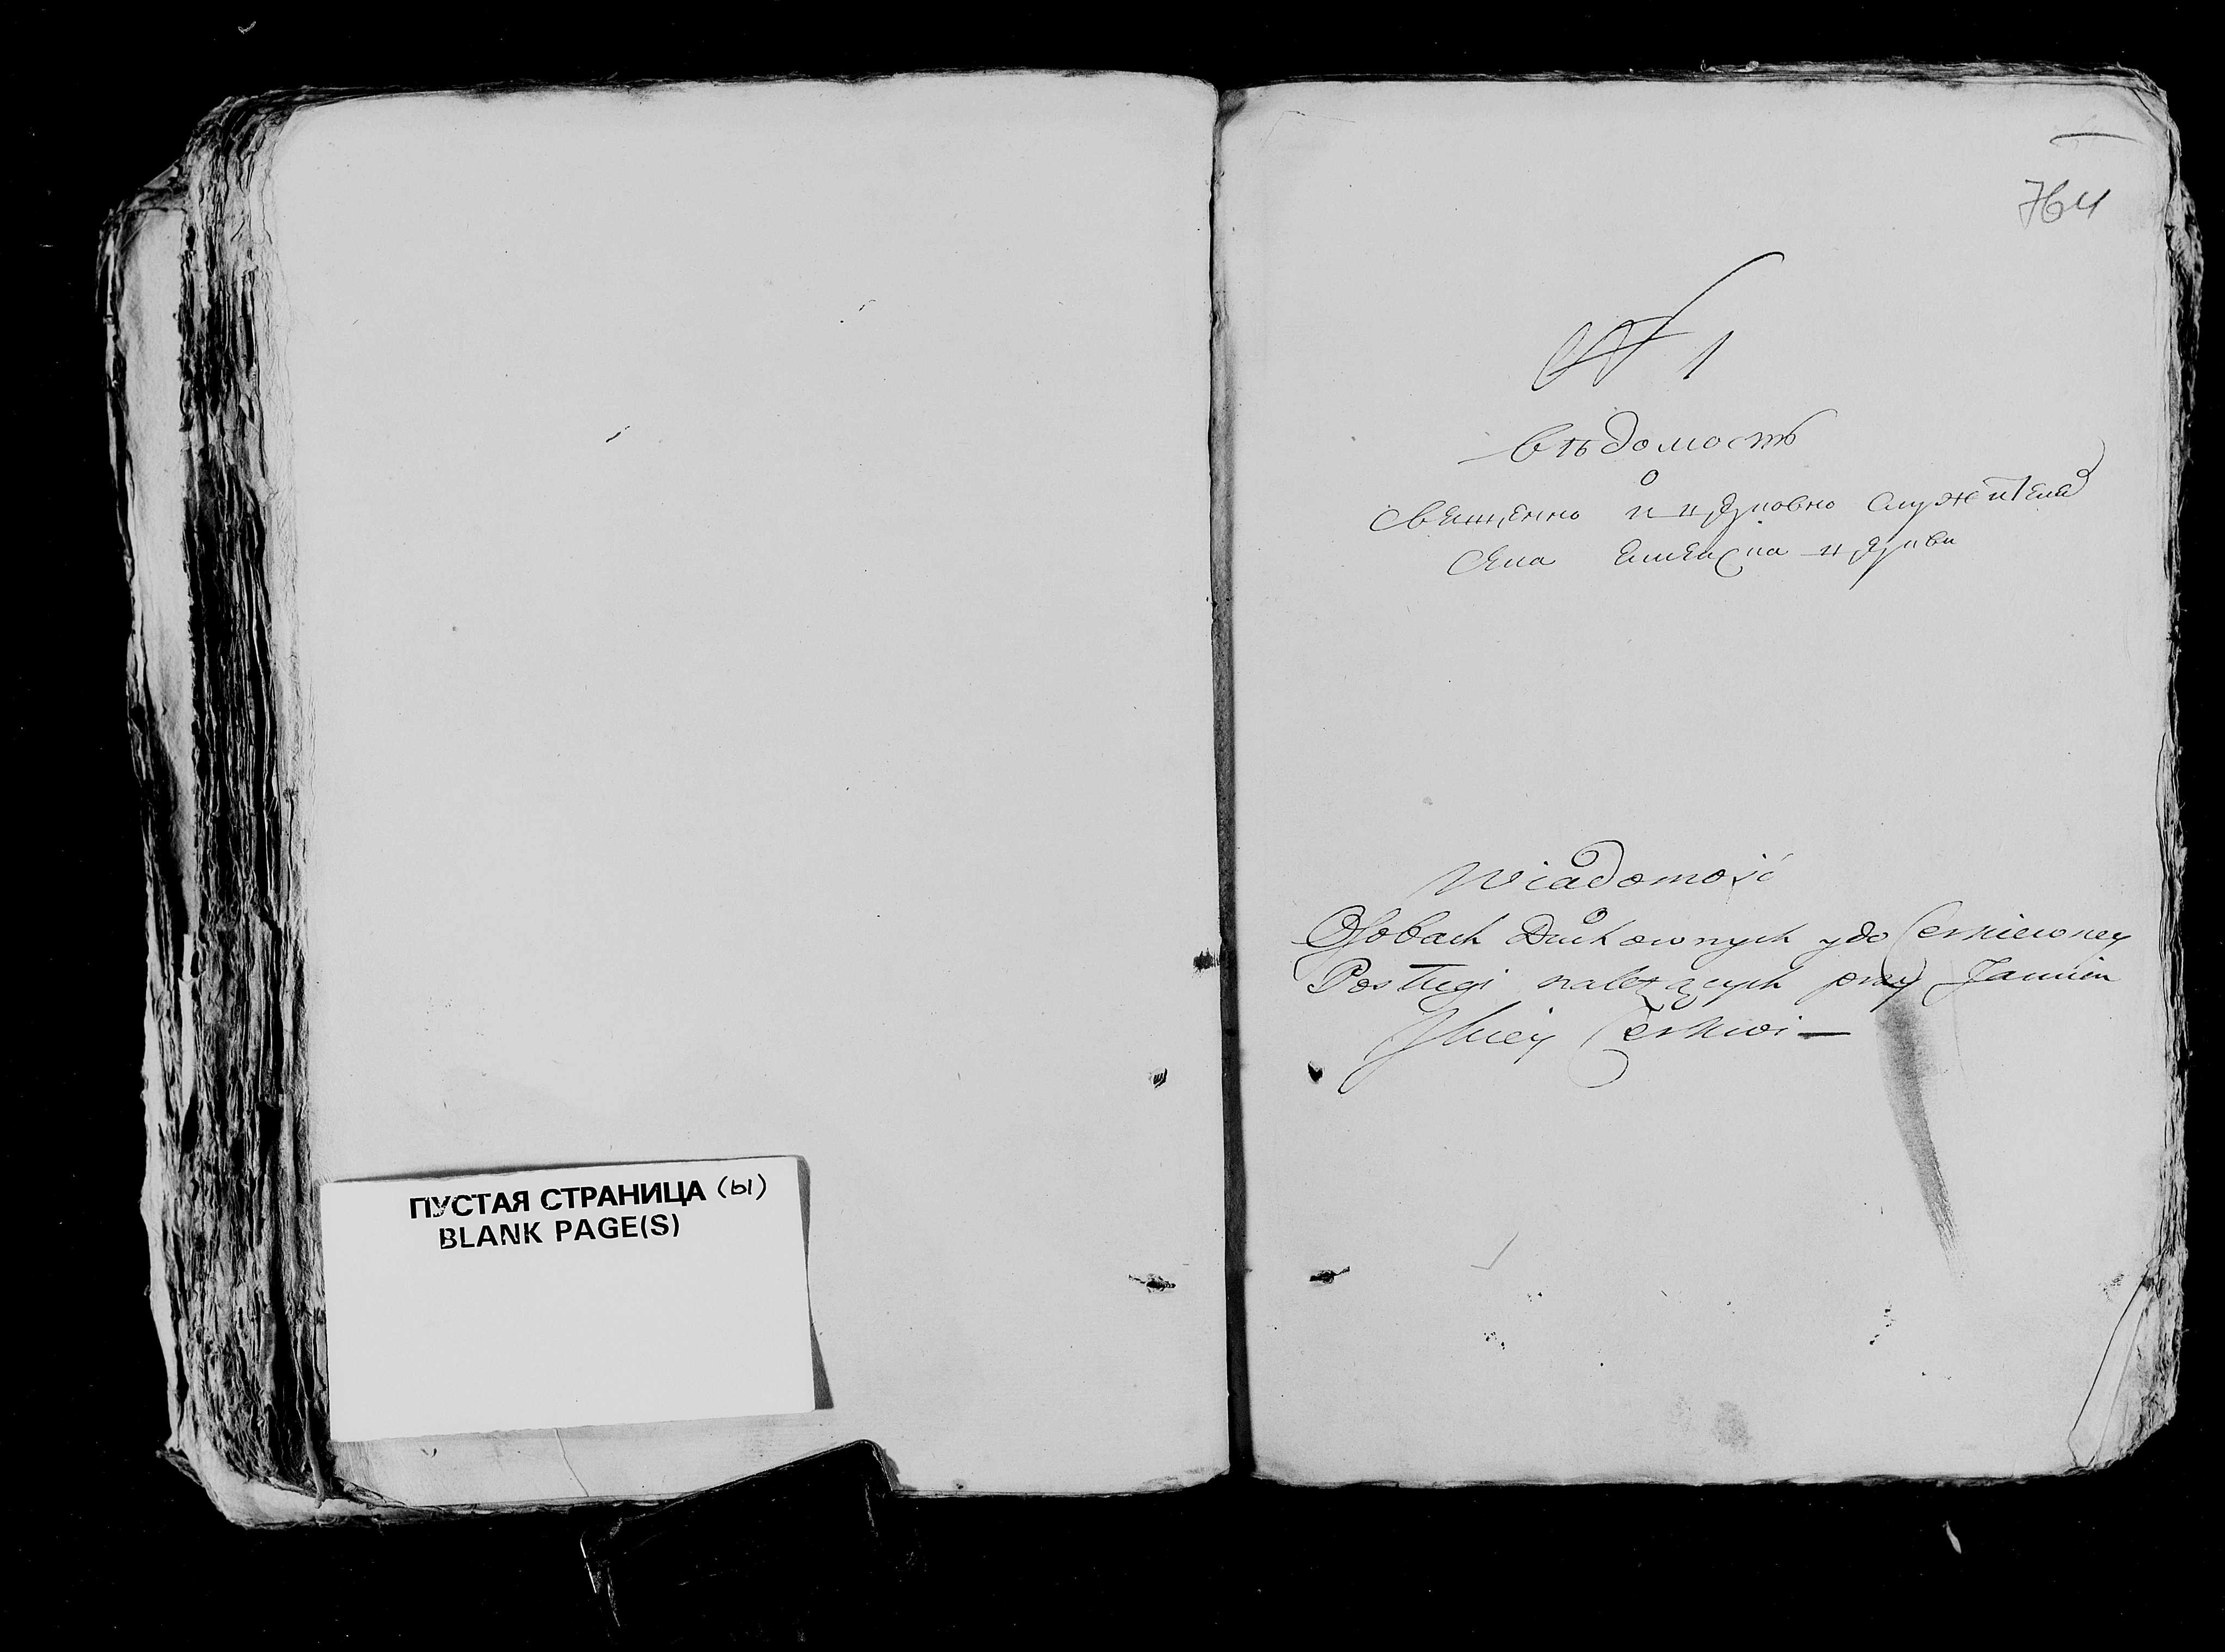 ПУСТАЯ СТРАНИЦА (ы)
BLANK PAGE(S)
764
№ 1
Вѣдомость
о
Священно и церковно служителей
Села церкви
Wiadomość
o
Osobach Duchownych y do Cerkiewney
Posługi należących przy
Cerkwi —